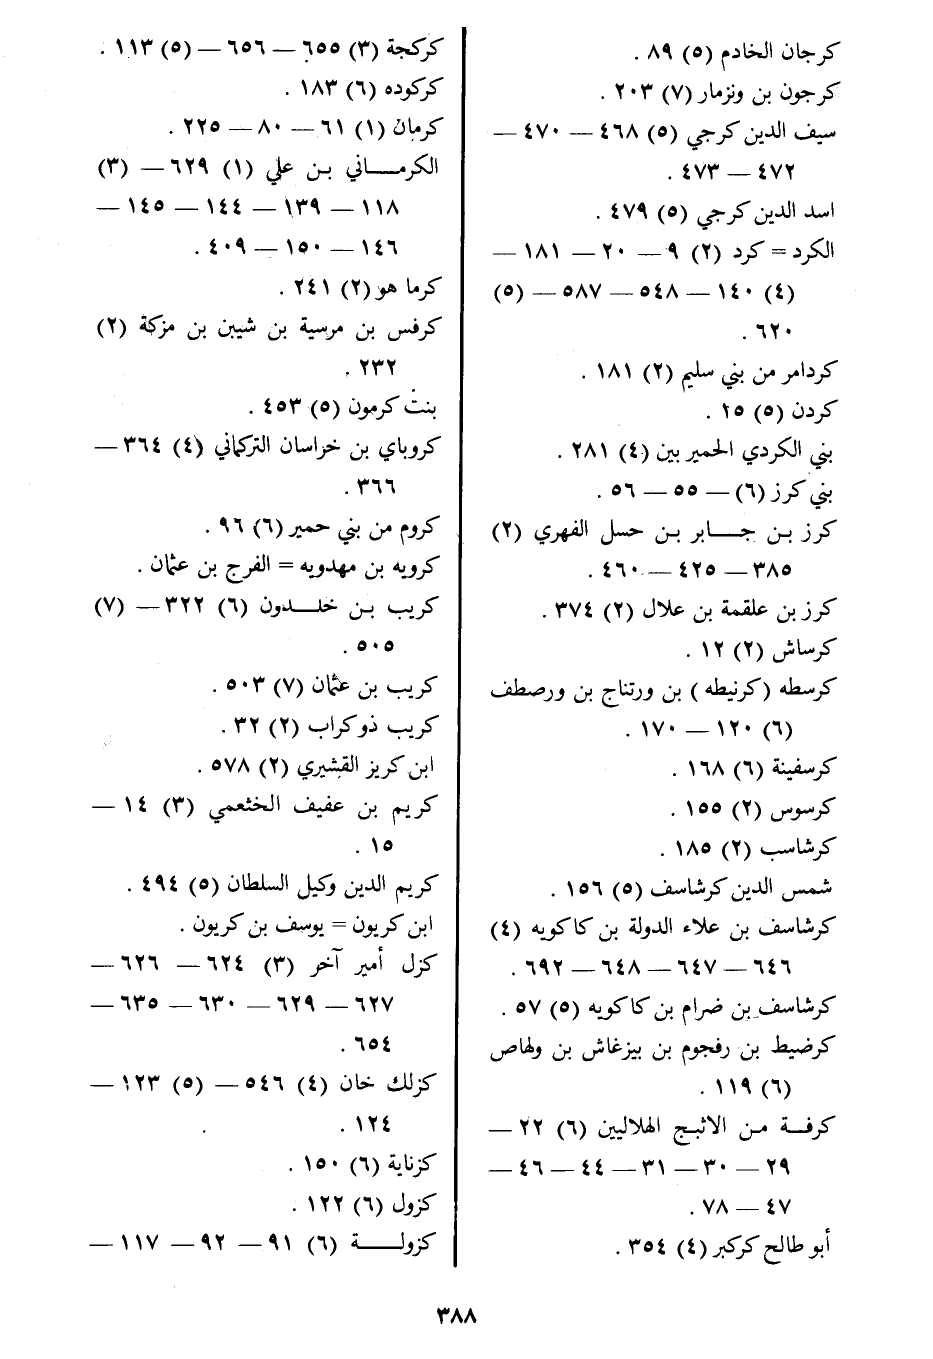 كرجان الخادم (٥) ٨٩ .
كرجون بن ونزمار (٧) ٢٠٣ .
سيف الدين كرجي (٥) ٤٦٨ — ٤٧٠ —
٤٧٢ — ٤٧٣ .
اسد الدين كرجي (٥) ٤٧٩ .
الكرد = كرد (٢) ٩ — ٢٠ — ١٨١ —
(٤) ١٤٠ — ٥٤٨ — ٥٨٧ — (٥)
٦٢٠ .
كردامر من بني سليم (٢) ١٨١ .
كردن (٥) ١٥ .
بني الكردي الحمير بين (٤) ٢٨١ .
بني كرز (٦) — ٥٥ — ٥٦ .
كرز بن جابر بن حسل الفهري (٢)
٣٨٥ — ٤٢٥ — ٤٦٠ .
كرز بن علقمة بن علال (٢) ٣٧٤ .
كرساش (٢) ١٢ .
كرسطه (كرنيطه) بن ورتناج بن ورصطف
(٦) ١٢٠ — ١٧٠ .
كرسفينة (٦) ١٦٨ .
كرسوس (٢) ١٥٥ .
كرشاسب (٢) ١٨٥ .
شمس الدين كرشاسف (٥) ١٥٦ .
كرشاسف بن علاء الدولة بن كاكويه (٤)
٦٤٦ — ٦٤٧ — ٦٤٨ — ٦٩٢ .
كرشاسف بن ضرام بن كاكويه (٥) ٥٧ .
كرضيط بن رفجوم بن بيزغاش بن ولهاص
(٦) ١١٩ .
كرفة من الاثبج الهلاليين (٦) ٢٢ —
٢٩ — ٣٠ — ٣١ — ٤٤ — ٤٦ —
٤٧ — ٧٨ .
أبو طالح كركبر (٤) ٣٥٤ .
كركجة (٣) ٦٥٥ — ٦٥٦ — (٥) ١١٣ .
كركوده (٦) ١٨٣ .
كرمان (١) ٦١ — ٨٠ — ٢٢٥ .
الكرماني بن علي (١) ٦٢٩ — (٣)
١١٨ — ١٣٩ — ١٤٤ — ١٤٥ —
١٤٦ — ١٥٠ — ٤٠٩ .
كرما هو (٢) ٢٤١ .
كرفس بن مرسية بن شيبن بن مزكة (٢)
٢٣٢ .
بنت كرمون (٥) ٤٥٣ .
كروباي بن خراسان التركماني (٤) ٣٦٤ —
٣٦٦ .
كروم من بني حمير (٦) ٩٦ .
كرويه بن مهدويه = الفرج بن عثمان .
كريب بن خلدون (٦) ٣٢٢ — (٧)
٥٠٥ .
كريب بن عثمان (٧) ٥٠٣ .
كريب ذو كراب (٢) ٣٢ .
ابن كريز القشيري (٢) ٥٧٨ .
كريم بن عفيف الخثعمي (٣) ١٤ —
١٥ .
كريم الدين وكيل السلطان (٥) ٤٩٤ .
ابن كريون = يوسف بن كريون .
كزل أمير آخر (٣) ٦٢٤ — ٦٢٦ —
٦٢٧ — ٦٢٩ — ٦٣٠ — ٦٣٥ —
٦٥٤ .
كزلك خان (٤) ٥٤٦ — (٥) ١٢٣ —
١٢٤ .
كزناية (٦) ١٥٠ .
كزول (٦) ١٢٢ .
كزولة (٦) ٩١ — ٩٢ — ١١٧ —
٣٨٨